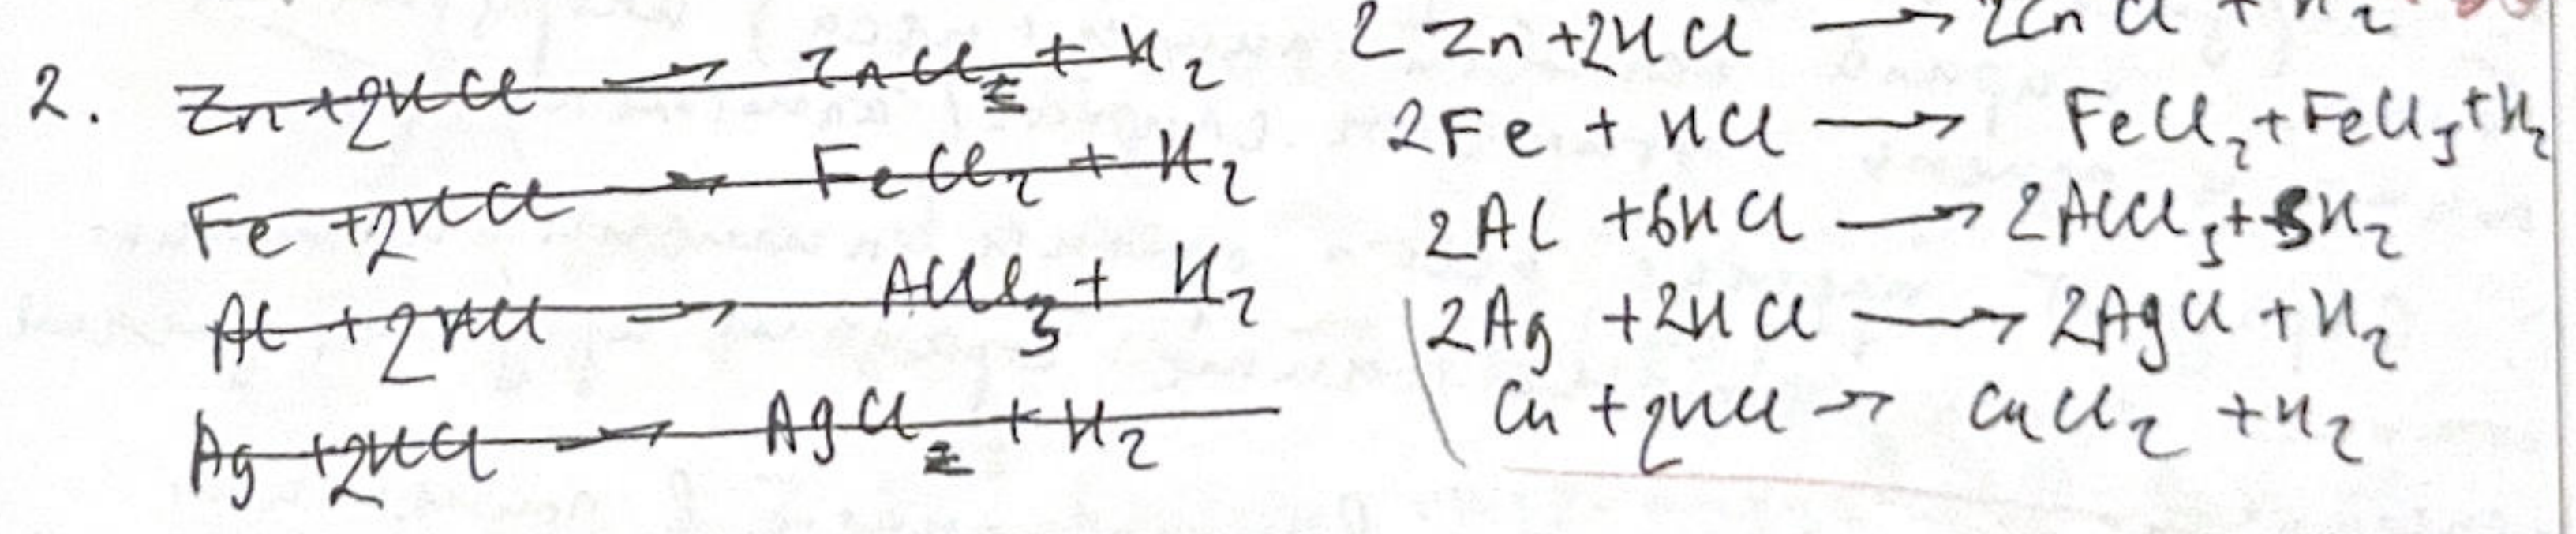 2. Zn + 2HCl → ZnCl₂ + H₂
Fe + 2HCl → FeCl₂ + H₂
Al + 2HCl → AlCl₃ + H₂
Ag + 2HCl → AgCl₂ + H₂
2Zn + 2HCl → 2ZnCl + H₂
2Fe + HCl → FeCl₂ + FeCl₃ + H₂
2Al + 6HCl → 2AlCl₃ + 3H₂
2Ag + 2HCl → 2AgCl + H₂
Cu + 2HCl → CuCl₂ + H₂